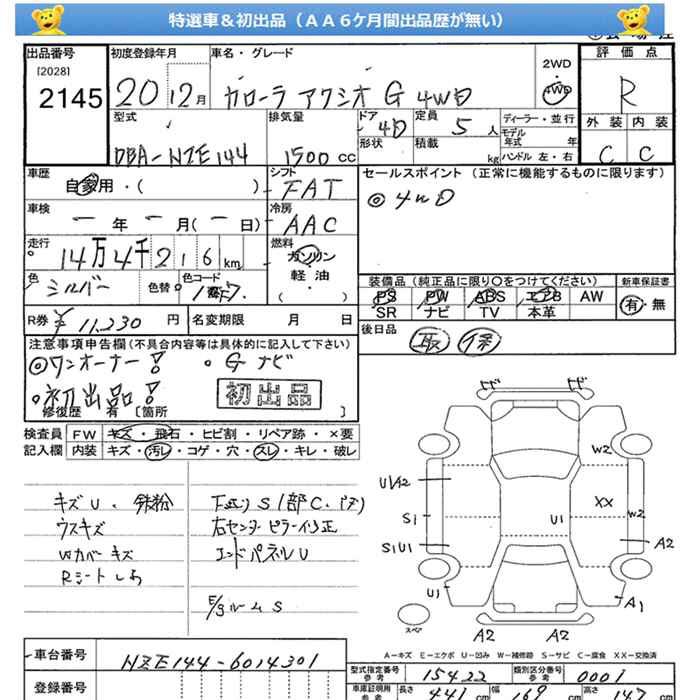 特選車＆初出品（ＡＡ６ケ月間出品歴が無い）
出品番号 初度登録年月 車名・グレード 評価点
[2028]
2145 20 12月 カローラ アクシオ G 4WD 2WD 4WD R
型式 排気量 ドア 形状 定員 積載 ディーラー・並行 モデル年式 年 ハンドル 左・右 外装 内装
DBA-NZE144 1500cc 4D 5人 kg C C
車歴 自家用・( ) シフト FAT セールスポイント（正常に機能するものに限ります）
車検 ー年 ー月(ー日) 冷房 AAC ◎4WD
走行 14万4千216km 燃料 ガソリン 軽・油 ( )
色 シルバー 色替 色コード
装備品（純正品に限り〇をつけてください） 新車保証書
PS PW ABS エアB AW 有・無
SR ナビ TV 本革
R券 ¥11,230円 名変期限 月 日 後日品 取 保
注意事項申告欄(不具合内容等は具体的に記入して下さい)
◎ワンオーナー! 。Gナビ
。初出品! 初出品
修復歴 有 [箇所 ]
検査員記入欄 FW キズ・飛石・ヒビ割・リペア跡・×要
内装 キズ・汚レ・コゲ・穴・スレ・キレ・破レ
キズU、鉄粉
ウスキズ
Wカバーキズ
Rシート
S1部C
右センターピラー
エンドパネルU
ルームS
W2
U1 A2
XX
S1 U1 W2
S1U1 A2
U1 A1
スペア
A2 A2
A－キズ E－エクボ U－凹み W－補修跡 S－サビ C－腐食 XX－交換済
車台番号 NZE144-6014301
登録番号
型式指定番号 参考 15422 類別区分番号 参考 0001
車庫証明用 参考 長さ 441cm 幅 169cm 高さ 147cm